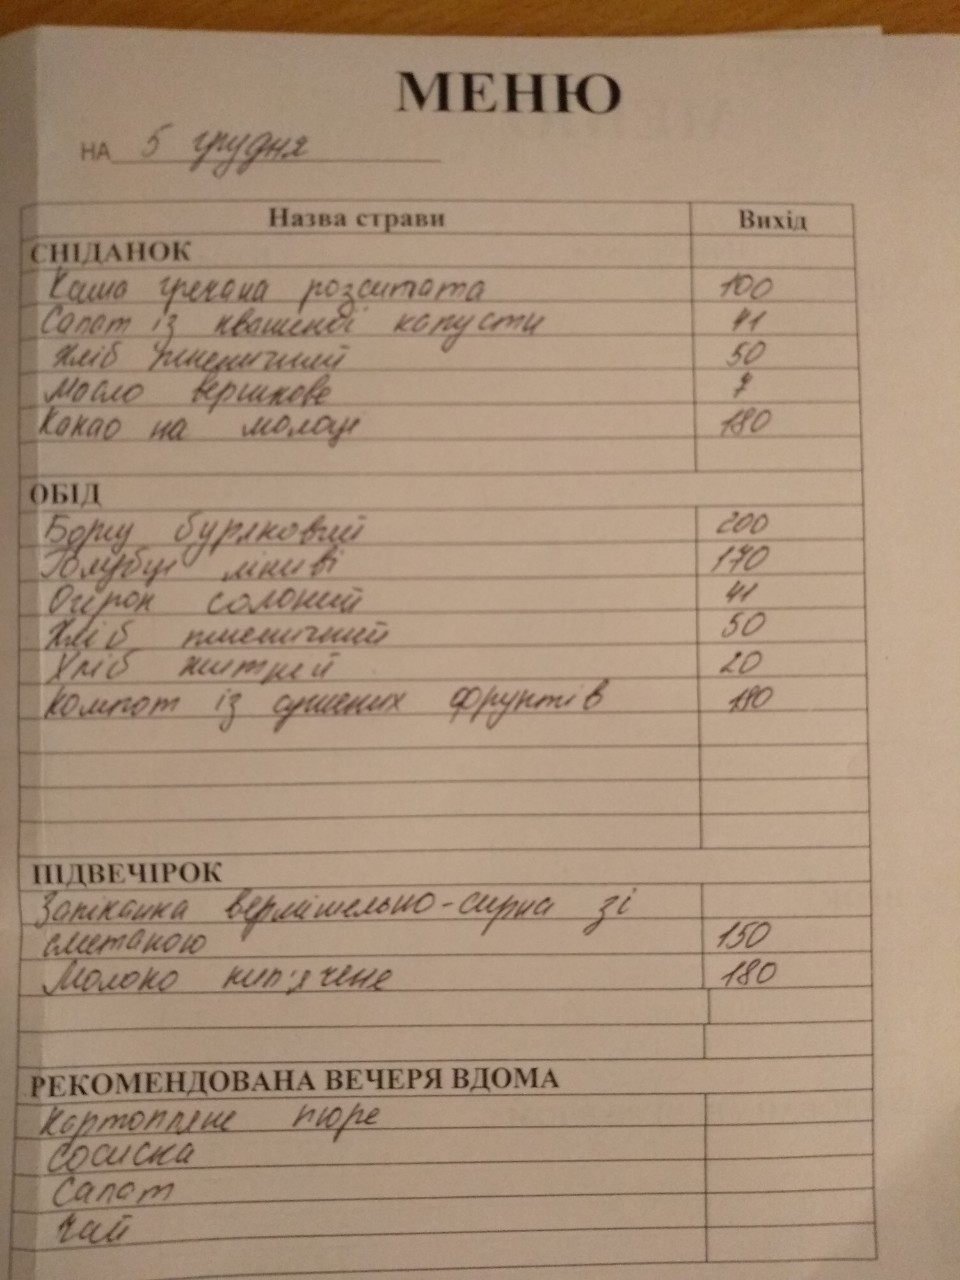 МЕНЮ
НА 5 грудня
Назва страви Вихід
СНІДАНОК
Каша гречана розситата 100
Салат із квашеної капусти 41
Хліб пшеничний 50
Масло вершкове 7
Какао на молоці 180
ОБІД
Борщ буряковий 200
Голубці ліниві 170
Огірок солоний 41
Хліб пшеничний 50
Хліб житній 20
Компот із сушених фруктів 180
ПІДВЕЧІРОК
Запіканка вермішельно-сирна зі
сметаною 150
Молоко кип'ячене 180
РЕКОМЕНДОВАНА ВЕЧЕРЯ ВДОМА
Картопляне пюре
Сосиска
Салат
Чай